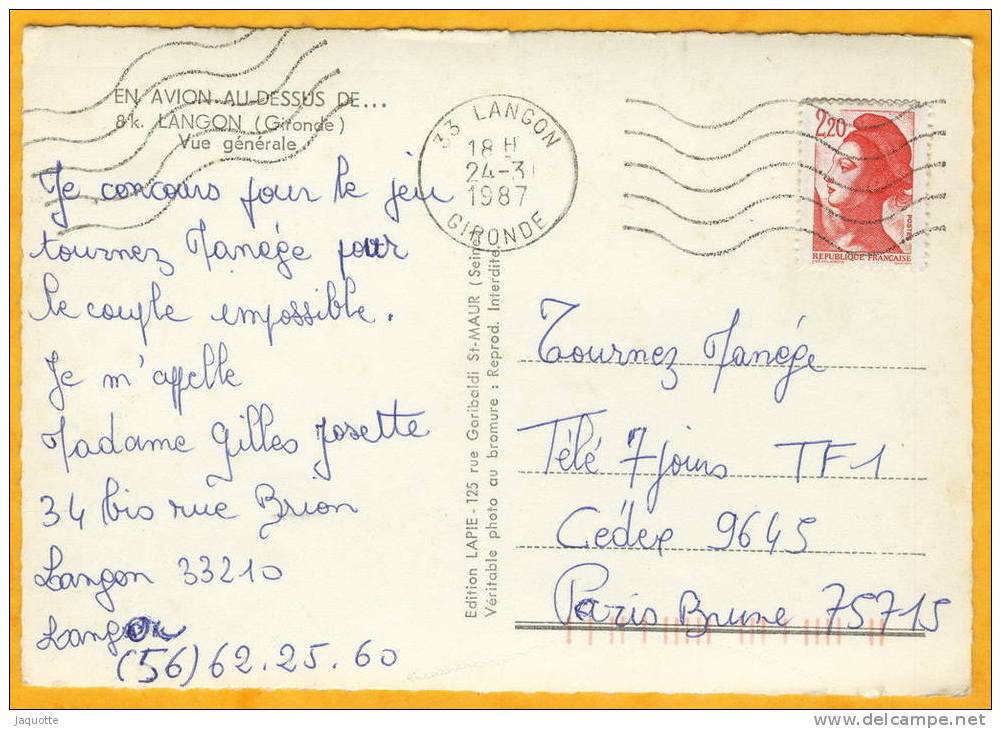 EN AVION AU-DESSUS DE...
8 k. LANGON (Gironde)
Vue générale
Je concours pour le jeu
tournez Manége pour
le couple empossible.
Je m'appelle
Madame Gilles Josette
34 bis rue Brion
Langon 33210
Langon
(56) 62.25.60
33 LANGON
18 H
24-3
1987
GIRONDE
Edition LAPIE - 125 rue Garibaldi St-MAUR (Seine
Véritable photo au bromure : Reprod. Interdite
2,20
POSTES
REPUBLIQUE FRANÇAISE
Tournez Manége
Télé 7 jours TF1
Cédex 9645
Paris Brune 75715
Jaquotte
delcampe.net